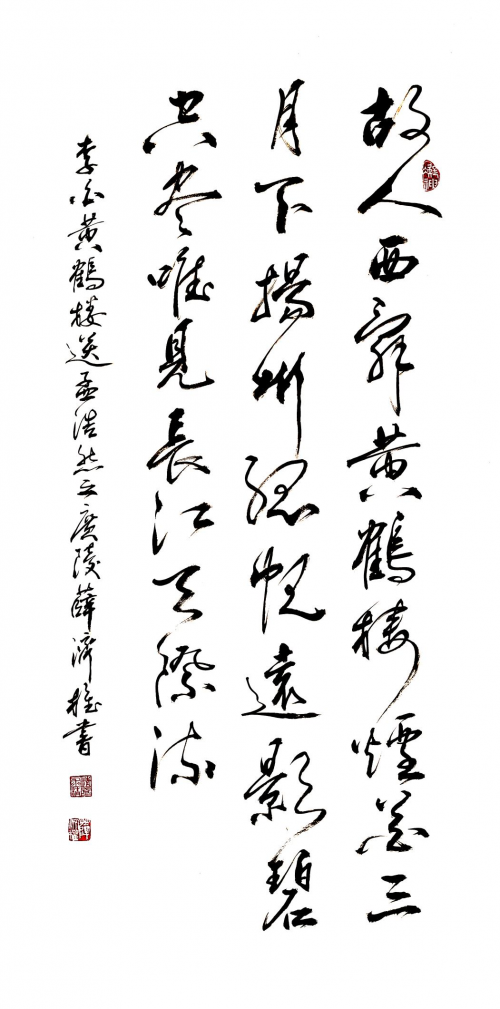 故人西辭黄鶴楼煙花三
月下揚州孤帆遠影碧
空尽唯見長江天際流
李白黄鶴楼送孟浩然之廣陵薛濟書